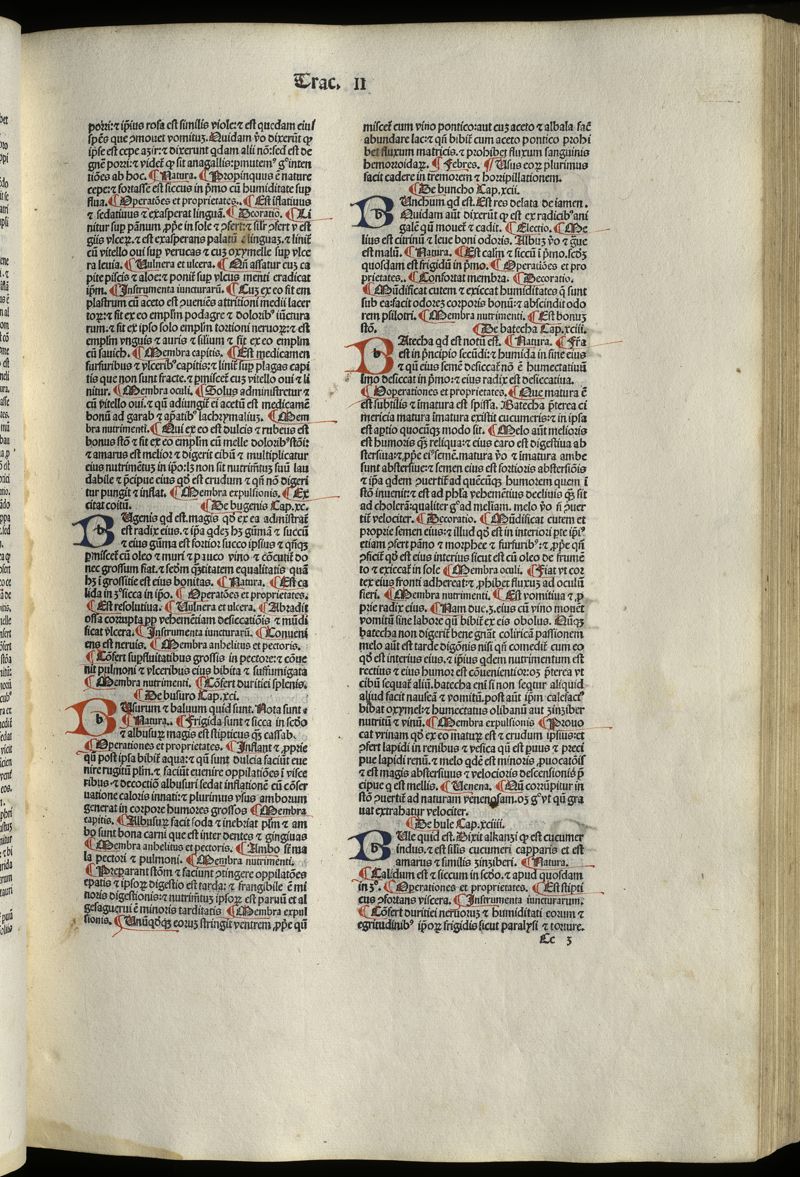 Trac. II
pori: ⁊ ipsius rosa est similis viole: ⁊ est quedam eius
spẽs que ꝓmouet vomitũ. Quidam ꝟo dixerũt ꝙ
ipse est cepe azir: ⁊ dixerunt qdam alii nõ: sed est de
ṽnt
ties ab hoc. ¶ Natura. ¶ Propinquius ẽ nature
cepe: ⁊ fortasse est siccus in pmo cũ humiditate sup
flua. ¶ Operatões et proprietates. ¶ Est iflatiuus
⁊ sedatiuus ⁊ exasperat linguã. ¶ Decoratio. ¶ Li
nitur sup pannum
giis vlceꝝ. ⁊ est exasperans palatũ ⁊ linguaz. ⁊ linit̃
cũ vitello oui sup verucas ⁊ cuz oxymelle sup vlce
ra leuia. ¶ Vulnera et vlcera. ¶ Qñ assatur cuz ca
pite piscis ⁊ aloe: ⁊ ponit̃ sup vlcus menti eradicat
ipm. ¶ Instrumenta iuncturarũ. ¶ Cuz ex eo fit em
plastrum cũ aceto est ꝓueniẽs attritioni medii lacer
toꝝ: ⁊ fit ex eo emplm podagre ⁊ doloribꝰ iũctura
rum. ⁊ fit ex ipso solo emplm tortioni neruoꝝ: ⁊ est
emplm vnguis ⁊ auris ⁊ silium ⁊ fit ex eo emplm
cũ sauich. ¶ Membra capitis. ¶ Est medicamen
furfuribus ⁊ vlceribꝰ capitis: ⁊ linit̃ sup plagas capi
tis que non sunt fracte. ⁊ pmiscet̃ cuz vitello oui ⁊ li
nitur. ¶ Membra oculi. ¶ Solus administretur ⁊
cũ vitello oui. ⁊ qñ adiungit̃ ei acetũ est medicamẽ
bonũ ad garab ⁊ apatibꝰ lachrymaliuz. ¶ Mem
bra nutrimenti. ¶ Qui ex eo est dulcis ⁊ rubeus est
bonus stõ ⁊ fit ex eo emplm cũ melle doloribꝰ stõi:
⁊ amarus est melior ⁊ digerit cibũ ⁊ multiplicatur
eius nutrimẽtuz in ipo: lz non sit nutrimt̃uz suũ lau
dabile ⁊ pcipue eius qđ est crudum ⁊ qñ nõ digeri
tur pungit ⁊ inflat. ¶ Membra expulsionis. ¶ Ex
citat coitũ. ¶ De bugenis Cap.xc.
BUgenis qd est. magis qđ ex ea administrat̃
est radix eius. ⁊ ipa qdez hz gũma ⁊ succũ
⁊ eius gũma est fortior succo ipsius ⁊ qñqz
pmiscet̃ cũ oleo ⁊ muri ⁊ pauco vino ⁊ cõcutit̃ do
nec grossum fiat. ⁊ secdm qz̃titatem equalitatis quã
hz i grossitie est eius bonitas. ¶ Natura. ¶ Est ca
lida in 3ꝰ sicca in ipo. ¶ Operatões et proprietates.
¶ Est resolutiua. ¶ Vulnera et vlcera. ¶ Abradit
ossa corrupta pp vehementiam desiccatiõis ⁊ mũdi
ficat vlcera. ¶ Instrumenta iuncturarũ. ¶ Conueni
ens est neruis. ¶ Membra anhelitus et pectoris.
¶ Cõfert supfluitatibus grossis in pectore: ⁊ cõue
nit pulmoni ⁊ vlceribus eius bibita ⁊ suffumigata
¶ Membra nutrimenti. ¶ Cõfert duritici splenis.
¶ De busuro Cap.xci.
BUsurum ⁊ baluum quid sunt. Nota sunt.
¶ Natura. ¶ Frigida sunt ⁊ sicca in scđo
⁊ albusuꝝ magis est stipticus qz cassab.
¶ Operationes et proprietates. ¶ Inflant ⁊ ꝓprie
qñ post ipsa bibit̃ aqua: ⁊ qñ sunt dulcia faciũt eue
nire rugitũ plm. ⁊ faciũt euenire oppilatiões i visce
ribus ⁊ decoctio albusuri sedat inflationẽ cũ cõser
uatione caloris innati: ⁊ plurimus vsus amborum
generat in corpore humores grossos ¶ Membra
capitis. ¶ Albusuꝝ facit soda ⁊ inebriat plm ⁊ am
bo sunt bona carni que est inter dentes ⁊ gingiuas
¶ Membra anhelitus et pectoris. ¶ Ambo st̃ ma
la pectori ⁊ pulmoni. ¶ Membra nutrimenti.
¶ Preparant stõm ⁊ faciunt ꝯtingere oppilatões
epatis ⁊ ipsoꝝ digestio est tarda: ⁊ frangibile ẽ mi
noris digestionis: ⁊ nutrimt̃uz ipsoꝝ est paruũ et al
gesaguerui ẽ minoris tarditatis ¶ Membra expul
sionis. ¶ Unũqđqz eoruz stringit ventrem ꝓpe qñ
miscet̃ cum vino pontico: aut cuz aceto ⁊ albala facẽ
abundare lac: ⁊ qñ bibit̃ cum aceto pontico prohi
bet fluxum matricis. ⁊ prohibet fluxum sanguinis
hemoroidaꝝ. ¶ Febres. ¶ Usus eoꝝ plurimus
facit cadere in tremorem ⁊ horripillationem.
¶ De buncho Cap.xcii.
BUnchum qd est. Est res delata de iamen.
Quidam aũt dixerũt ꝙ est ex radicibꝰ ani
galẽ qũ mouet̃ ⁊ cadit. ¶ Electio. ¶ Me
lius est citrinũ ⁊ leue boni odoris. Albuz ꝟo ⁊ g̃ue
est malũ. ¶ Natura. ¶ Est calm ⁊ siccũ i pmo. scđz
quosdam est frigidũ in pmo. ¶ Operatiões et pro
prietates. ¶ Confortat membra. ¶ Decoratio.
¶ Mũdificat cutem ⁊ exiccat humiditates q̃ sunt
sub ea: facit odorez corporis bonũ: ⁊ abscindit odo
rem psilotri. ¶ Membra nutrimenti. ¶ Est bonuz
stõ. ¶ De batecha Cap.xciii.
BAtecha qd est notũ est. ¶ Natura. ¶ Fr̃a
est in pncipio secũdi: ⁊ humida in fine eius
⁊ qñ eius semẽ desiccat̃ nõ ẽ humectatiuũ
imo desiccat in pmo: ⁊ eius radix est desiccatiua.
¶ Operationes et proprietates. ¶ Que matura ẽ
est subtilis ⁊ imatura est spissa. Batecha pterea ci
mericia matura imatura existit cucumeris: ⁊ in ipsa
est aptio quocũqz modo sit. ¶ Melo aũt melioris
est humoris qz reliqua: ⁊ eius caro est digestiua ab
stersiua: ⁊ ꝓpe eiꝰ semẽ. matura ꝟo ⁊ imatura ambe
sunt abstersiue: ⁊ semen eius est fortioris abstersiõis
⁊ ipa qdem ꝯuertit̃ ad quẽcũqz humorem quem i
stõ inuenit: ⁊ est ad phla vehemẽtius decliuis qz sit
ad cholerã: qualiter gͦ ad meliam. melo ꝟo ñ ꝯuer
tit̃ velociter. ¶ Decoratio. ¶ Mũdificat cutem et
proprie semen eius: ⁊ illud qđ est in interiori pte ipiꝰ
etiam ꝯfert pãno ⁊ morphee ⁊ furfuribꝰ: ⁊ ꝓpe qñ
ꝯficit̃ qđ est eius interius sicut est cũ oleo de frumẽ
to ⁊ exiccat̃ in sole ¶ Membra oculi. ¶ Fiat vt cor
tex eius fronti adhereat: ⁊ ꝓhibet fluxuz ad oculũ
fieri. ¶ Membra nutrimenti. ¶ Est vomitiua ⁊ ꝓ
prie radix eius. ¶ Nam duc.3. eius cũ vino mouẽt
vomitũ sine labore qñ bibit̃ ex eis obolus. Qñqz
batecha non digerit̃ bene gñat coliricã passionem
melo aũt est tarde digõnis nisi qñ comedit̃ cum eo
qđ est interius eius. ⁊ ipsius qdem nutrimentum est
rectius ⁊ eius humor est cõuenientior: oz pterea vt
cibũ sequat̃ aliũ. batecha eni si non sequit̃ aliquid
aliud facit nauseã ⁊ vomitũ. post aũt ipm calefact̃
bibat oxymel: ⁊ humectatus olibanũ aut zinziber
nutritũ ⁊ vinũ. ¶ Membra expulsionis ¶ Prouo
cat vrinam qđ ex eo matuꝝ est ⁊ crudum ipsius: et
ꝯfert lapidi in renibus ⁊ vesica qñ est puus ⁊ preci
pue lapidi renũ. ⁊ melo qdẽ est minoris ꝓuocatõis
⁊ est magis abstersiuus ⁊ velocioris descensionis p
cipue qz est mellis. ¶ Venena. ¶ Qñ corrũpitur in
stõ ꝯuertit̃ ad naturam venenosam. oz gͦ vt qñ gra
uat extrahatur velociter.
¶ De bule Cap.xciiii.
BUle quid est. Dixit alkanzi ꝙ est cucumer
indus. ⁊ est silis cucumeri capparis et est
amarus ⁊ similis zinziberi. ¶ Natura.
¶ Calidum est ⁊ siccum in scđo. ⁊ apud quosdam
in 3ꝰ. ¶ Operationes et proprietates. ¶ Est stipti
cus ꝯfortans viscera. ¶ Instrumenta iuncturarum.
¶ Cõfert duritici neruoruz ⁊ humiditati eorum ⁊
egritudinibꝰ ipoꝝ frigidis sicut paralysi ⁊ torture.
Cc 3